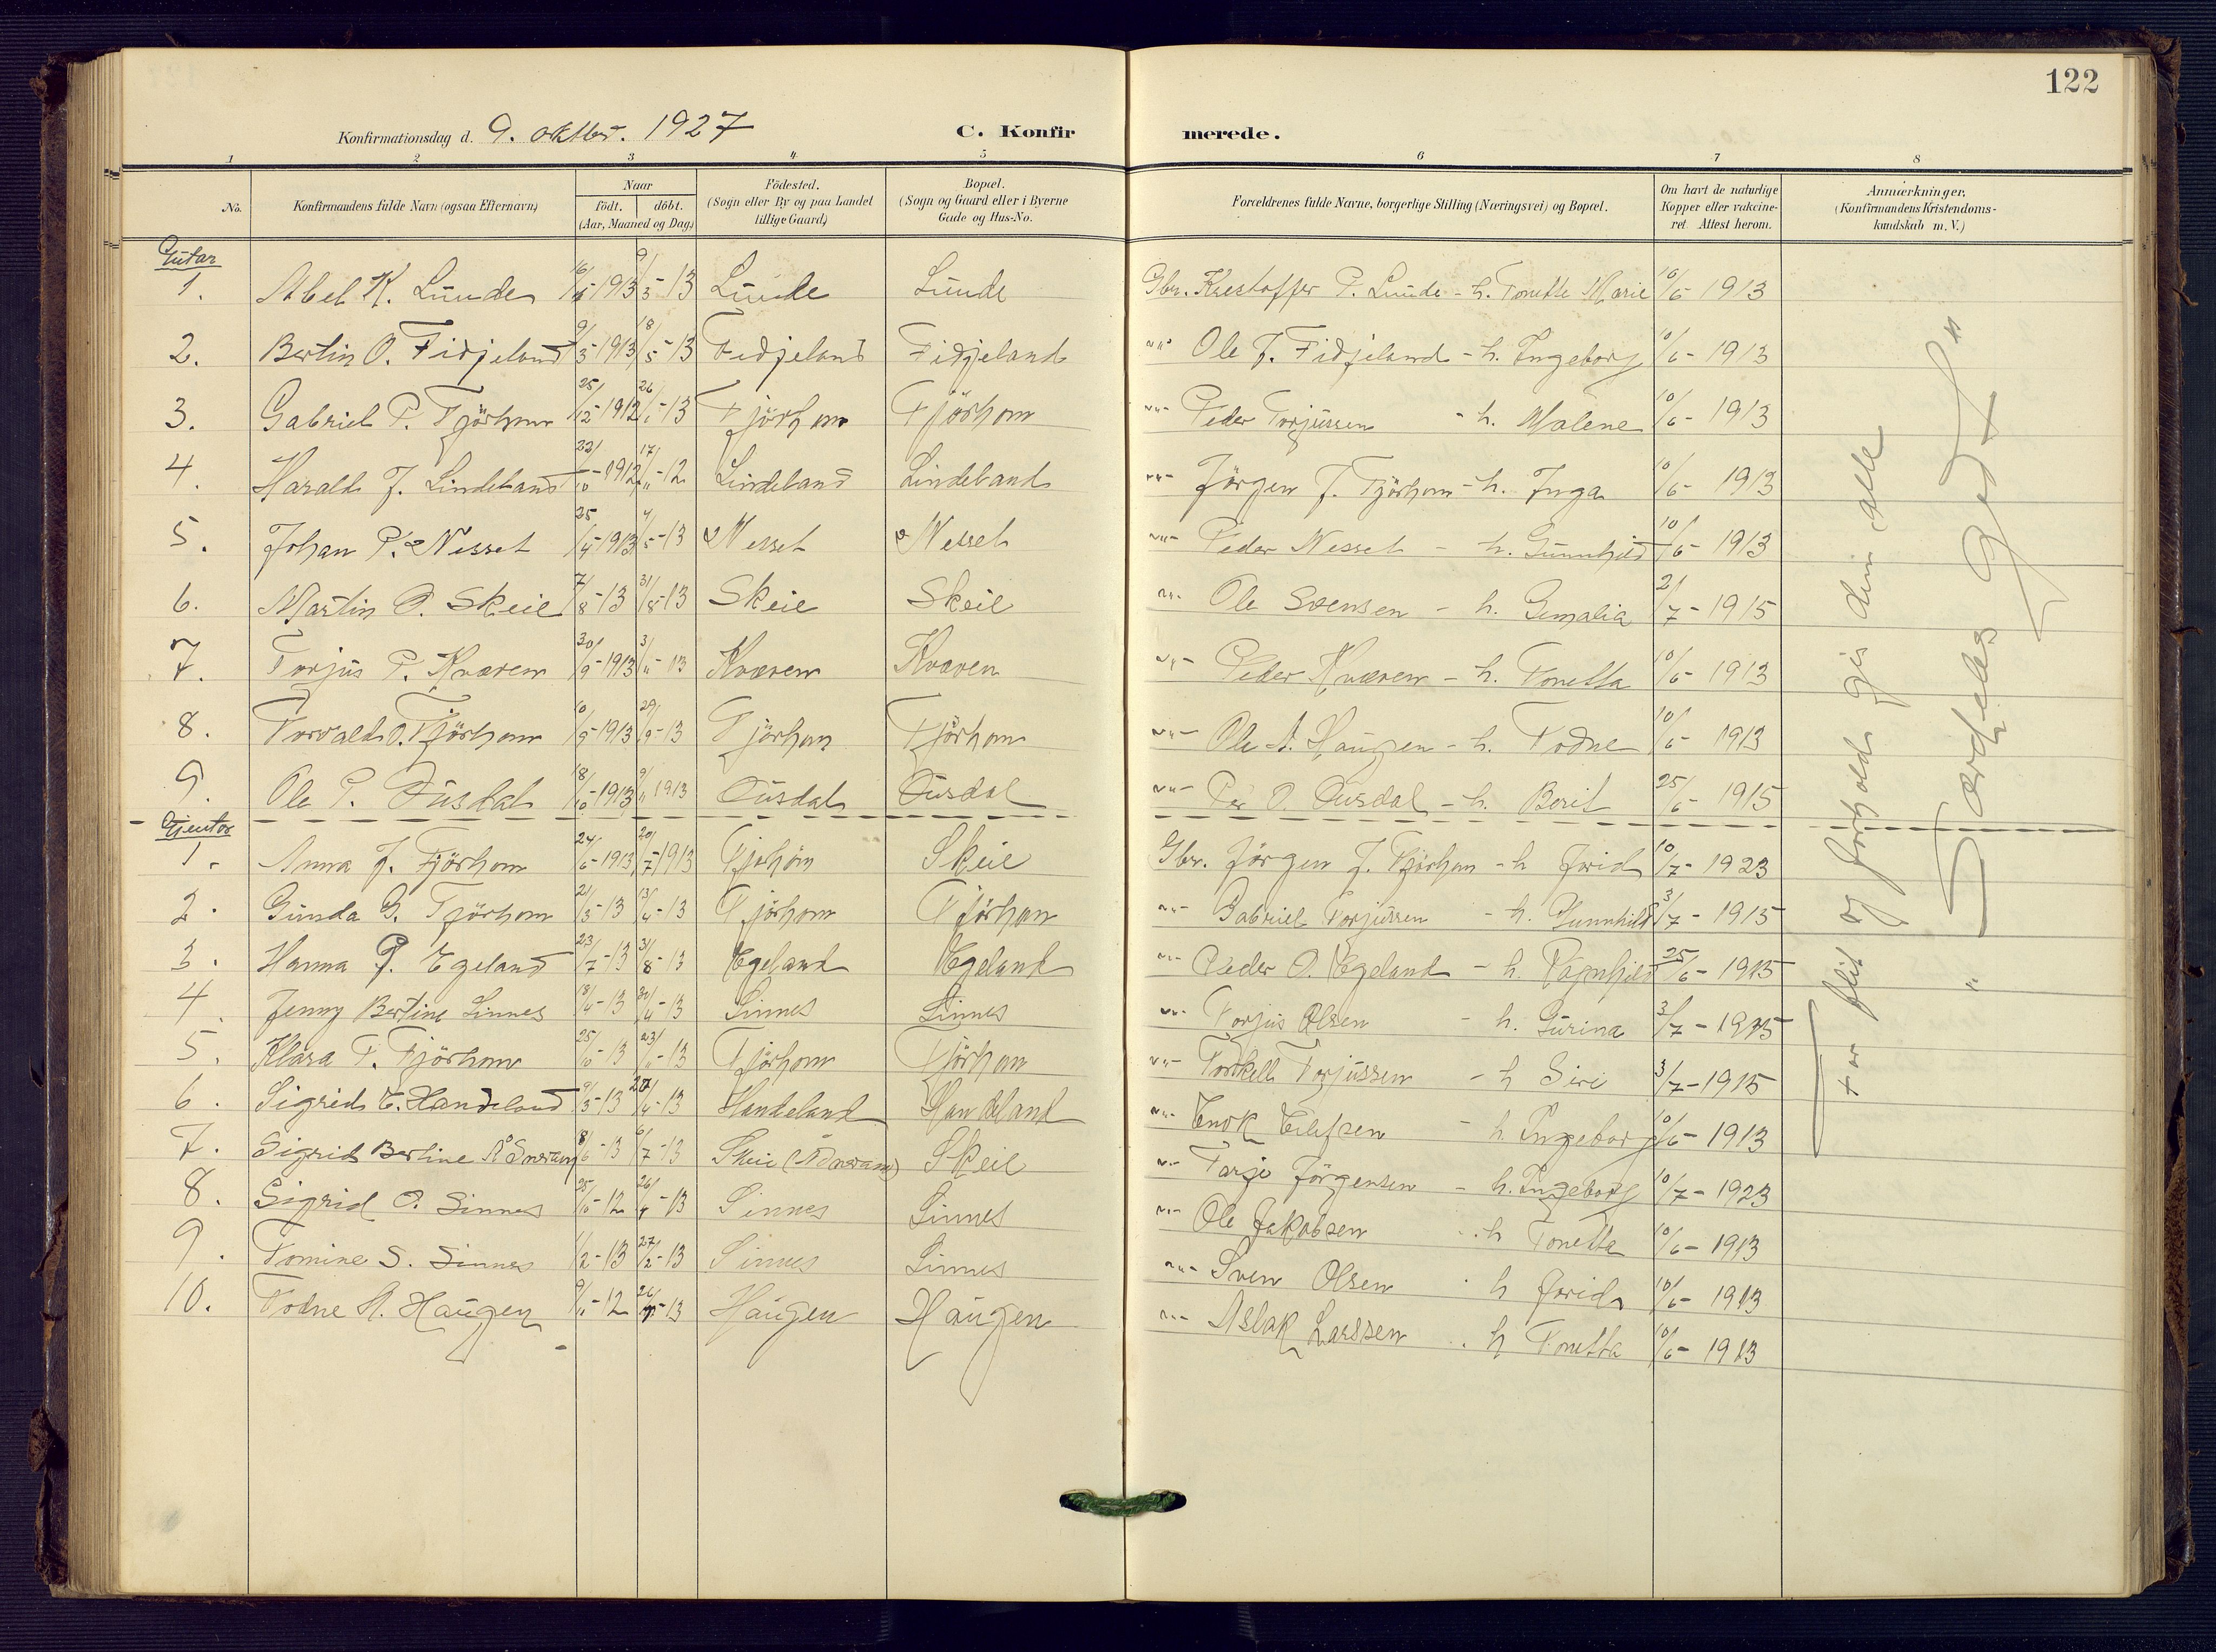 122
Konfirmationsdag d. 9. oktbr. 1927 C. Konfirmerede.
1 2 3 4 5 6 7 8
No.
Konfirmandens fulde Navn (ogsaa Efternavn)
Naar
födt. döbt.
(Aar, Maaned og Dag)
Födested.
(Sogn eller By og paa Landet
tillige Gaard)
Bopæl.
(Sogn og Gaard eller i Byerne
Gade og Hus-No.
Forældrenes fulde Navne, borgerlige Stilling (Næringsvei) og Bopæl.
Om havt de naturlige
Kopper eller vakcine-
ret Attest herom.
Anmærkninger,
(Konfirmandens Kristendoms-
kundskab m. V.)
Gutar
1. Abel K. Lunde 1913 9/5-13 Lunde Lunde Gbr. Krestoffer P. Lunde - h. Tonette Marie 10/6 1913
2. Bertin O. Fidjeland 9/3-1913 18/5-13 Fidjeland Fidjeland -"- Ole J. Fidjeland - h. Ingeborg 10/6-1913
3. Gabriel P. Tjörhom 25/12-1912 26/1-13 Tjörhom Tjörhom -"- Peder Torjussen - h. Malene 10/6-1913
4. Harald J. Lindeland 22/10-1912 17/11-12 Lindeland Lindeland -"- Jörgen J. Tjörhom - h. Inga 10/6-1913
5. Johan P. Nesset 25/4-1913 4/5-13 Nesset Nesset -"- Peder Nesset - h. Gunnhild 10/6-1913
6. Martin O. Skeie 7/8-13 31/8-13 Skeie Skeie -"- Ole Svensen - h. Gemalia 2/7-1915
7. Torjus P. Kvæven 30/9-1913 3/11-13 Kvæven Kvæven -"- Peder Kvæven - h. Tonetta 10/6-1913
8. Torvald O. Tjörhom 10/9-1913 29/9-13 Tjörhom Tjörhom -"- Ole A. Haugen - h. Todne 10/6 1913
9. Ole P. Ousdal 18/10-1913 9/11 1913 Ousdal Ousdal -"- Per O. Ousdal - h. Berit 25/6-1915
Gjentor
1. Anna J. Tjörhom 24/6-1913 20/7-1913 Tjörhom Skeie Gbr. Jörgen J. Tjörhom - h Jorid 10/7-1923
2. Gunda G. Tjörhom 21/3-13 13/4-13 Tjörhom Tjörhom -"- Gabriel Torjussen - h. Gunnhild 3/7-1915
3. Hanna P. Egeland 23/7-13 31/8-13 Egeland Egeland -"- Peder O. Egeland - h. Ragnhild 25/6-1915
4. Jenny Bertine Sinnes 13/4-13 Sinnes Sinnes -"- Torjus Olsen - h. Gurina 3/7-1915
5. Klara T. Tjörhom 25/10-13 23/11-13 Tjörhom Tjörhom -"- Torkell Torjussen - h Siri 3/7-1915
6. Sigrid E. Handeland 9/3-13 20/4-13 Handeland Handeland -"- Enok Eilefsen - h. Ingeborg 10/6-1913
7. Sigrid Bertine Ådneram 8/6-13 6/7-13 Skeie (Ådneram) Skeie -"- Tarje Jörgensen - h. Ingeborg 10/7-1923
8. Sigrid O. Sinnes 25/10-12 -13 Sinnes Sinnes -"- Ole Jakobsen - h Tonetta 10/6-1913
9. Tomine S. Sinnes 1/2-13 27/2-13 Sinnes Sinnes -"- Sven Olsen - h Jorid 10/6-1913
10. Todne A. Haugen -12 -13 Haugen Haugen -"- Aslak Larssen - h Tonetta 10/6-1913
For flid og forhold gis dem alle
" Særdeles Godt "